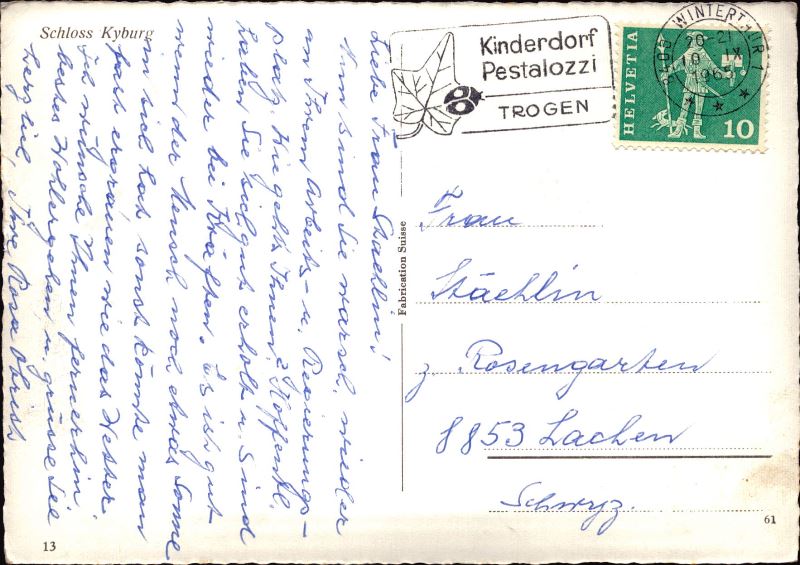 Schloss Kyburg
Liebe Frau Staehlin!
Nun sind Sie warsch. wieder
an Ihrem Arbeits- u. Regierungs-
platz. Wie geht's Ihnen? Hoffentl.
haben Sie sich gut erholt u. sind
wieder bei Kräften. Es ist gut
wenn der Mensch noch etwas Sonne
in sich hat sonst könnte man
fast ergrauen wie das Wetter.
Ich wünsche Ihnen fernerhin
bestes Wohlergehen u. grüsse Sie
herzlich, Ihre Rosa Obrist
13
Fabrication Suisse
Kinderdorf
Pestalozzi
TROGEN
8400 WINTERTHUR 1
20-21
10. IX
1965
HELVETIA
10
Frau
Stächlin
z. Rosengarten
8853 Lachen
Schwyz.
61